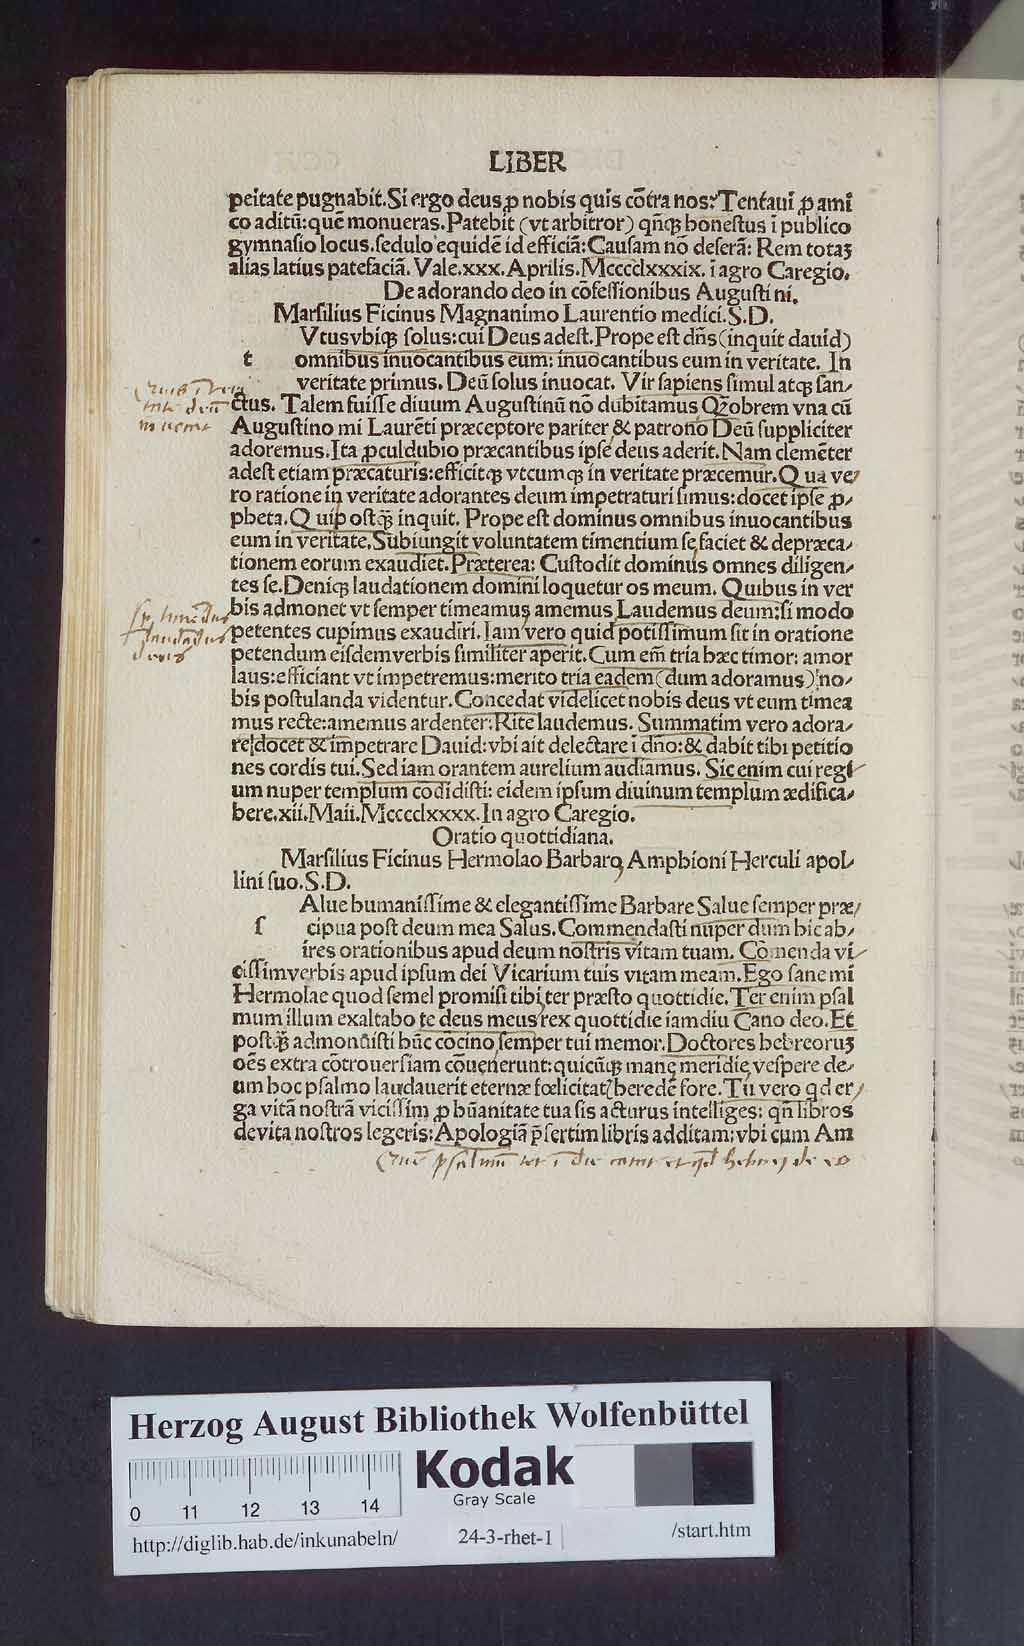 LIBER
peitate pugnabit. Si ergo deus ꝓ nobis quis cōtra nos? Tentaui ꝓ ami
co aditū: quē monueras. Patebit (vt arbitror) qn̄qꝫ honestus ī publico
gymnasio locus. sedulo equidē id efficiā: Causam nō deserā: Rem totaꝫ
alias latius patefaciā. Vale. xxx. Aprilis. Mccccclxxxix. ī agro Caregio.
De adorando deo in cōfessionibus Augustini.
Marsilius Ficinus Magnanimo Laurentio medici. S.D.
Vtusvbiqꝫ solus: cui Deus adest. Prope est dn̄s (inquit dauid)
t omnibus inuocantibus eum: inuocantibus eum in veritate. In
veritate primus. Deū solus inuocat. Vir sapiens simul atqꝫ san-
ctus. Talem fuisse diuum Augustinū nō dubitamus Qꝫobrem vna cū
Augustino mi Laurēti præceptore pariter & patrono Deū suppliciter
adoremus. Ita ꝓculdubio præcantibus ipse deus aderit. Nam clemēter
adest etiam præcaturis: efficitqꝫ vtcumqꝫ in veritate præcemur. Qua ve-
ro ratione in veritate adorantes deum impetraturi simus: docet ipse ꝓ-
pheta. Qui postqꝫ̄ inquit. Prope est dominus omnibus inuocantibus
eum in veritate, Subiungit voluntatem timentium se faciet & depræca-
tionem eorum exaudiet. Præterea: Custodit dominus omnes diligen-
tes se. Deniqꝫ laudationem domini loquetur os meum. Quibus in ver
bis admonet vt semper timeamus amemus Laudemus deum: si modo
petentes cupimus exaudiri. Iam vero quid potissimum sit in oratione
petendum eisdem verbis similiter aperit. Cum em̄ tria hæc timor: amor
laus: efficiant vt impetremus: merito tria eadem (dum adoramus) no-
bis postulanda videntur. Concedat videlicet nobis deus vt eum timea
mus recte: amemus ardenter: Rite laudemus. Summatim vero adora-
re docet & impetrare Dauid: vbi ait delectare ī dn̄o: & dabit tibi petitio
nes cordis tui. Sed iam orantem aurelium audiamus. Sic enim cui regi
um nuper templum condidisti: eidem ipsum diuinum templum ædifica-
bere. xii. Maii. Mcccclxxxx. In agro Caregio.
Oratio quottidiana.
Marsilius Ficinus Hermolao Barbaro Amphioni Herculi apol-
lini suo. S.D.
Alue humanissime & elegantissime Barbare Salue semper præ-
s cipua post deum mea Salus. Commendasti nuper dum hic ab-
ires orationibus apud deum nostris vitam tuam. Cōmenda vi
cissim verbis apud ipsum dei Vicarium tuis vitam meam. Ego sane mi
Hermolae quod semel promisi tibi ter præsto quottidie. Ter enim psal
mum illum exaltabo te deus meus rex quottidie iamdiu Cano deo. Et
postqꝫ̄ admonuisti hūc cōcino semper tui memor. Doctores hebreoruꝫ
oēs extra cōtrouersiam cōuenerunt: quicūqꝫ mane meridie vespere de-
um hoc psalmo laudauerit eternæ fœlicitatꝭ heredē fore. Tu vero qd er-
ga vitā nostrā vicissim ꝓ hūanitate tua sis acturus intelliges: qn̄ libros
de vita nostros legeris: Apologiā p̄sertim libris additam: vbi cum Am
Herzog August Bibliothek Wolfenbüttel
0 11 12 13 14
Kodak
Gray Scale
http://diglib.hab.de/inkunabeln/ 24-3-rhet-1 /start.htm